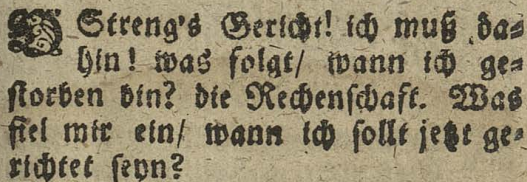 O Streng's Gericht! ich muß da=
hin! was folgt/ wann ich ge=
storben bin? die Rechenschaft. Was
fiel mir ein/ wann ich sollt jetzt ge=
richtet seyn?